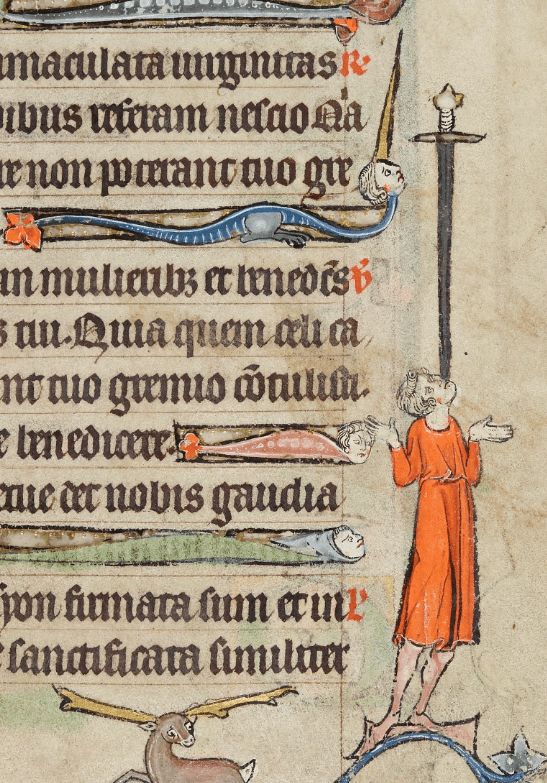 mmaculata uirginitas R
dibus referam nescio Qa
re non poterant tuo gre
in mulieribꝫ et benedc̄s v
s tui. Quia quem celi ca
ant tuo gremio cōtulisti.
e benedicere
etue det nobis gaudia
syon firmata sum et in R
e sanctificata similiter